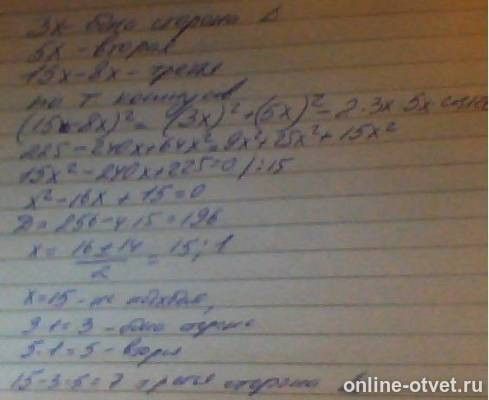 3x - одна сторона Δ
5x - вторая
15x-8x - третья
по т. косинусов
(15-8x)² = (3x)² + (5x)² - 2·3x·5x cos120
225-240x+64x²=9x²+25x²+15x²
15x²-240x+225=0 /:15
x²-16x+15=0
D=256-4·15=196
x = 16±14 / 2 = 15; 1
x=15 - не подходит,
3·1=3 - одна сторона
5·1=5 - вторая
15-3-5=7 третья сторона
online-otvet.ru